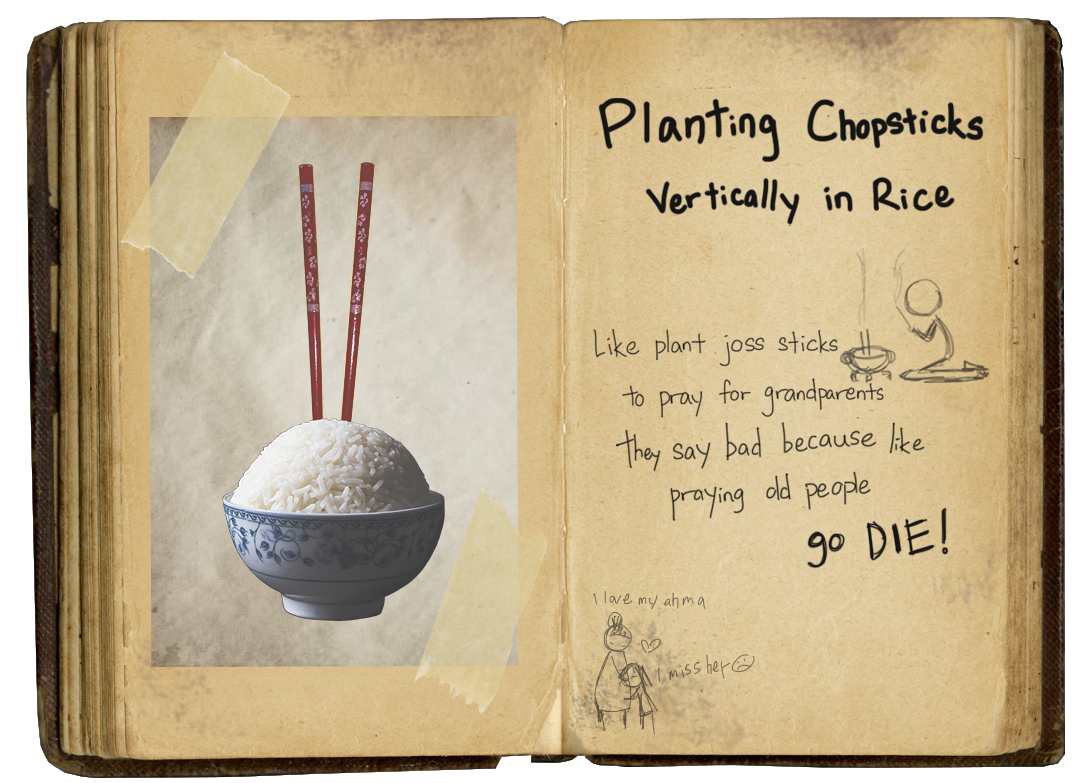 Planting Chopsticks
Vertically in Rice
Like plant joss sticks
to pray for grandparents
they say bad because like
praying old people
go DIE!
I love my ahma
I miss her